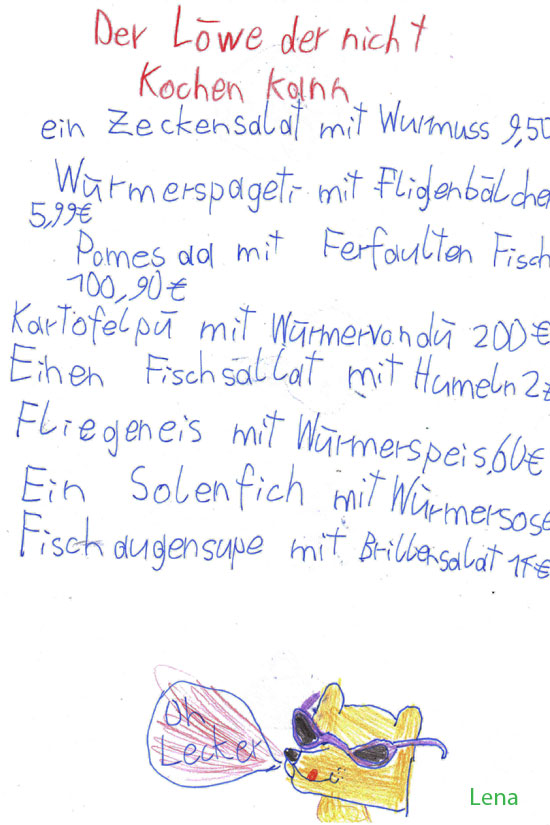 Der Löwe der nicht
Kochen kann
ein Zeckensalat mit Wurmuss 9,50
Würmerspageti mit Fligenbälche
5,99€
Pomes ad mit Ferfaulten Fisch
100,90€
Kartofelpü mit Würmervondü 200€
Einen Fischsallat mit Humeln 2
Fliegeneis mit Würmerspeis 60€
Ein Solenfich mit Würmersose
Fischaugensupe mit Brillensalat 1€
Oh
Lecker
Lena